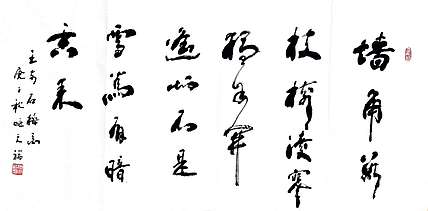 墙角数
枝梅凌寒
独自開
遥知不是
雪為有暗
香来
王安石梅花
庚子秋